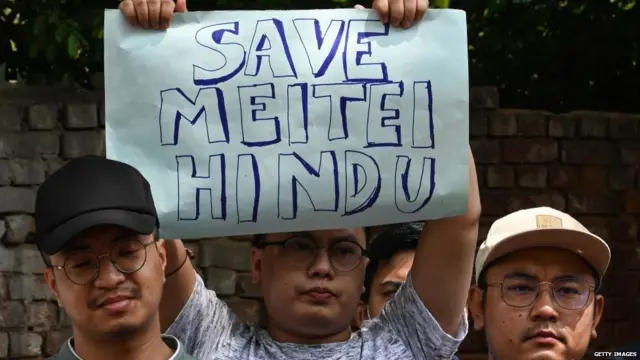 SAVE
MEITEI
HINDU
GETTY IMAGES